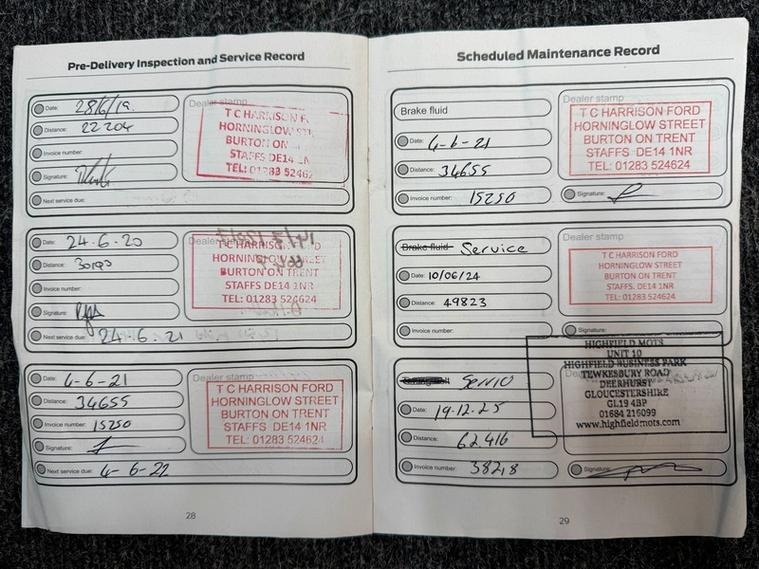 Pre-Delivery Inspection and Service Record
Date: 28/6/19.
Distance: 22204
Invoice number:
Signature:
Next service due:
Dealer stamp
T C HARRISON F
HORNINGLOW ST
BURTON ON
STAFFS DE14 1N
TEL: 01283 52462
Date: 24.6.20
Distance:
Invoice number:
Signature:
Next service due: 24.6.21
Dealer
T C HARRISON
HORNINGLOW STREET
BURTON ON TRENT
STAFFS DE14 1NR
TEL: 01283 524624
Date: 4-6-21
Distance: 34655
Invoice number: 15250
Signature:
Next service due: 4-6-22
Dealer stamp
T C HARRISON FORD
HORNINGLOW STREET
BURTON ON TRENT
STAFFS DE14 1NR
TEL: 01283 524624
28
Scheduled Maintenance Record
Brake fluid
Date: 4-6-21
Distance: 34655
Invoice number: 15250
Dealer stamp
T C HARRISON FORD
HORNINGLOW STREET
BURTON ON TRENT
STAFFS DE14 1NR
TEL: 01283 524624
Signature:
Brake fluid Service
Date: 10/06/24
Distance: 49823
Invoice number:
Dealer stamp
T C HARRISON FORD
HORNINGLOW STREET
BURTON ON TRENT
STAFFS DE14 1NR
TEL: 01283 524624
Signature:
Date: 19.12.25
Distance: 62416
Invoice number: 38218
HIGHFIELD MOTS
UNIT 10
HIGHFIELD BUSINESS PARK
TEWKESBURY ROAD
DEERHURST
GLOUCESTERSHIRE
GL19 4BP
01684 216099
www.highfieldmots.com
Signature:
29